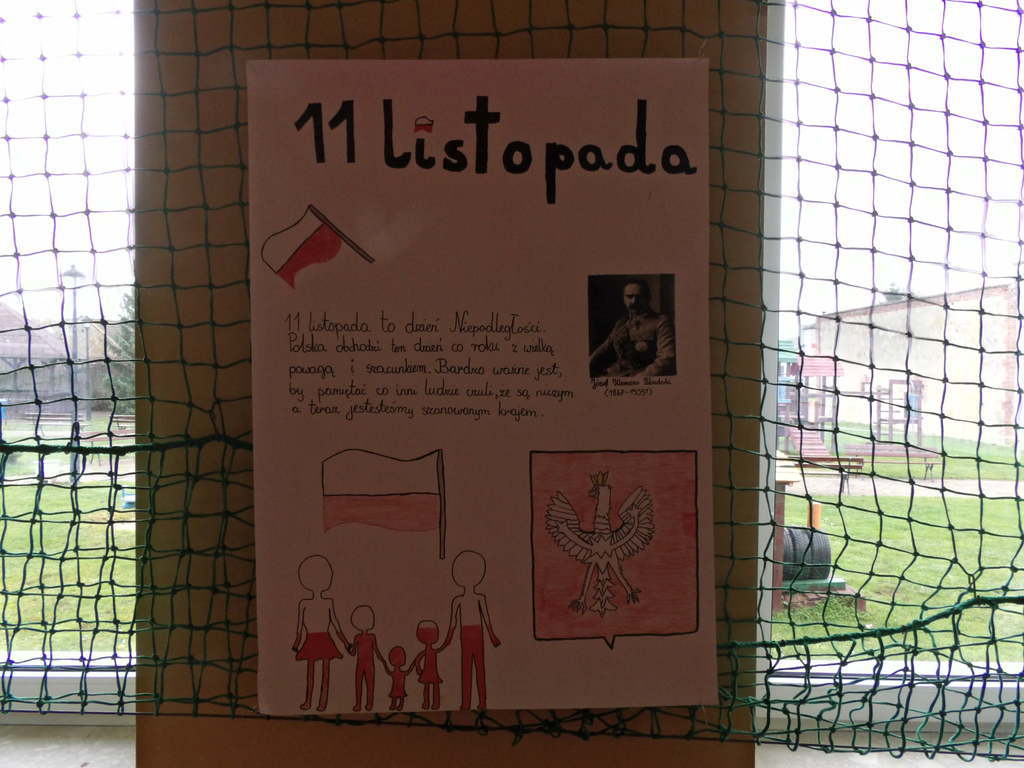 11 listopada
11 listopada to dzień Niepodległości.
Polska obchodzi ten dzień co roku z wielką
powagą i szacunkiem. Bardzo ważne jest,
by pamiętać co inni ludzie czuli, że są niczym
a teraz jestestesmy szanowanym krajem.
Józef Klemens Piłsudski
(1867-1935r)